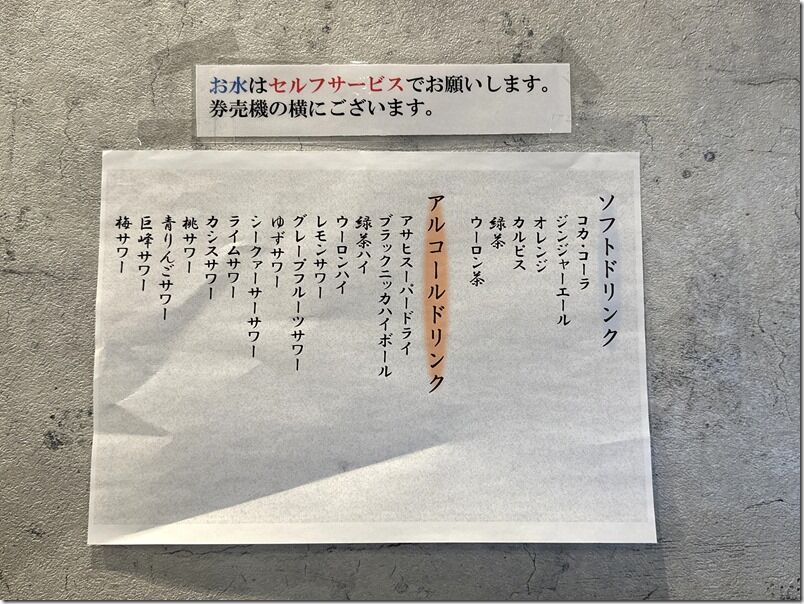 お水はセルフサービスでお願いします。
券売機の横にございます。
ソフトドリンク
コカ・コーラ
ジンジャーエール
オレンジ
カルピス
緑茶
ウーロン茶
アルコールドリンク
アサヒスーパードライ
ブラックニッカハイボール
緑茶ハイ
ウーロンハイ
レモンサワー
グレープフルーツサワー
ゆずサワー
シークァーサーサワー
ライムサワー
カシスサワー
桃サワー
青りんごサワー
巨峰サワー
梅サワー